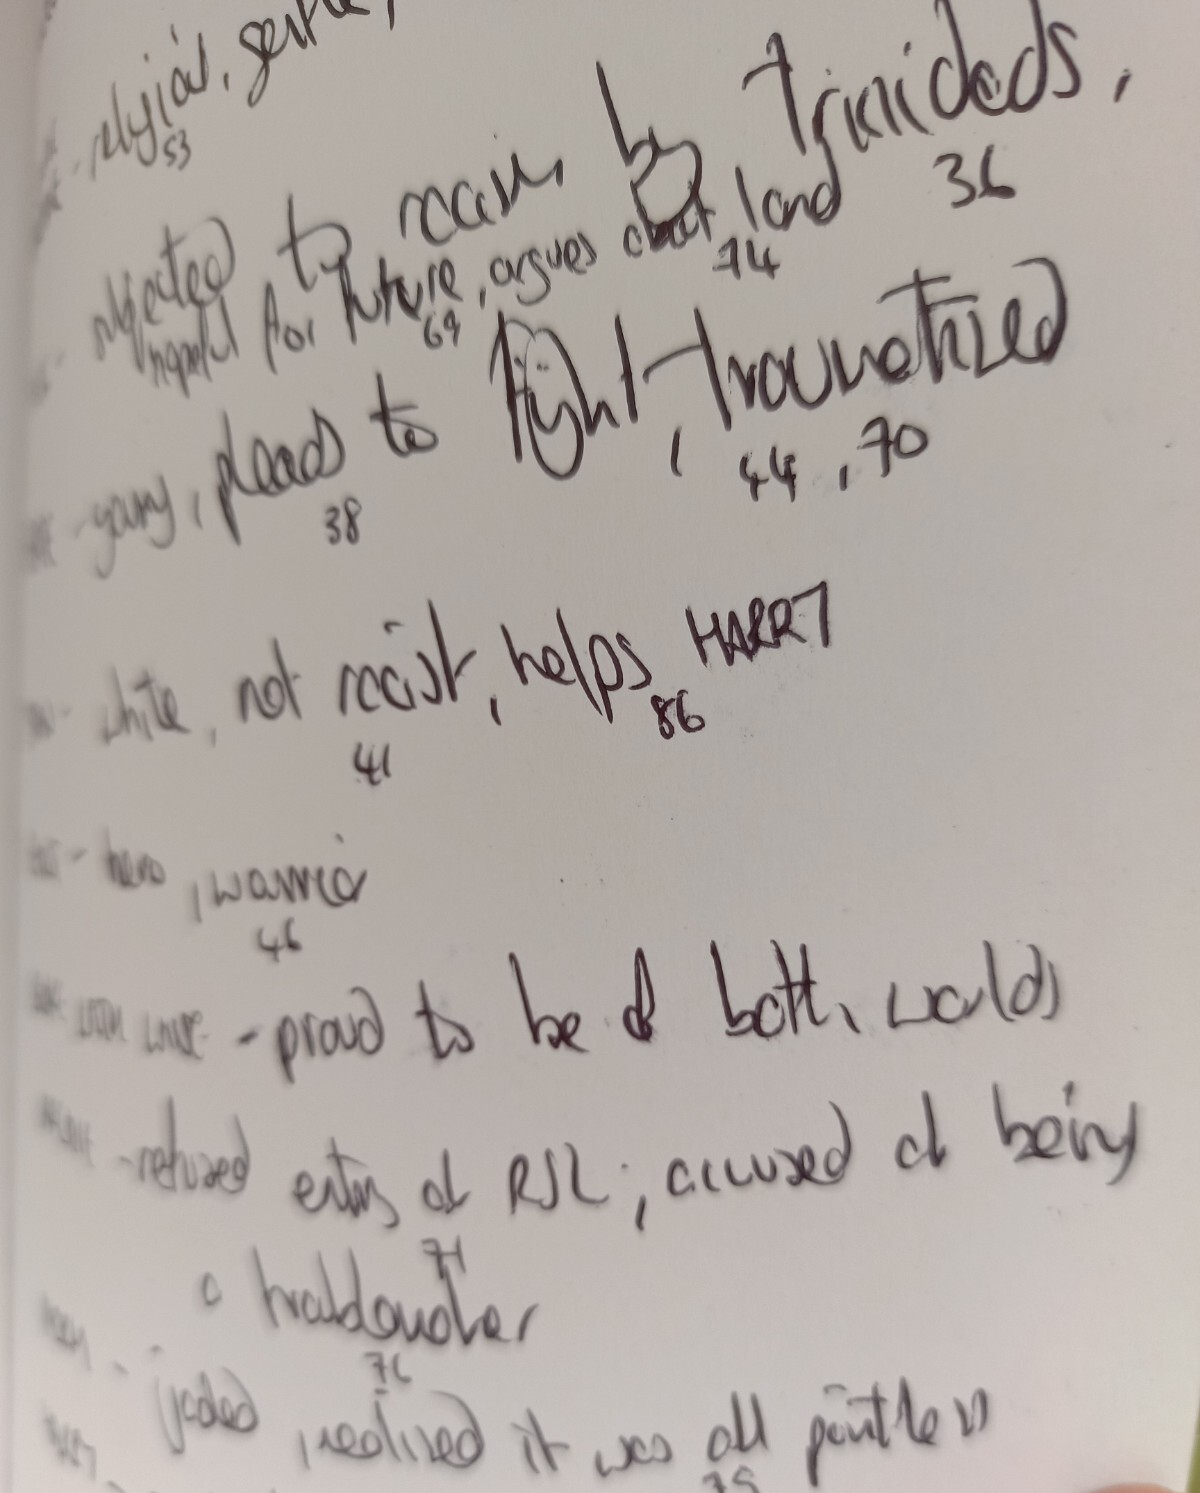 religious, gentle,
53
subjected to racism by Trinidads,
36
hopeful for future, argues about land
69 74
- young, pleads to fight, traumatized
38 44, 70
- white, not racist, helps HARRY
41 86
- hero, warrior
46
- proud to be of both worlds
- refused entry at RSL; accused of being
71
a
76
- jaded, realised it was all pointless